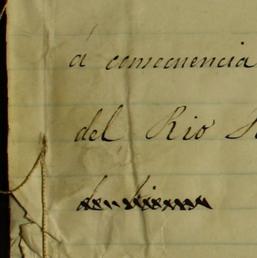 á consecuencia
del Rio